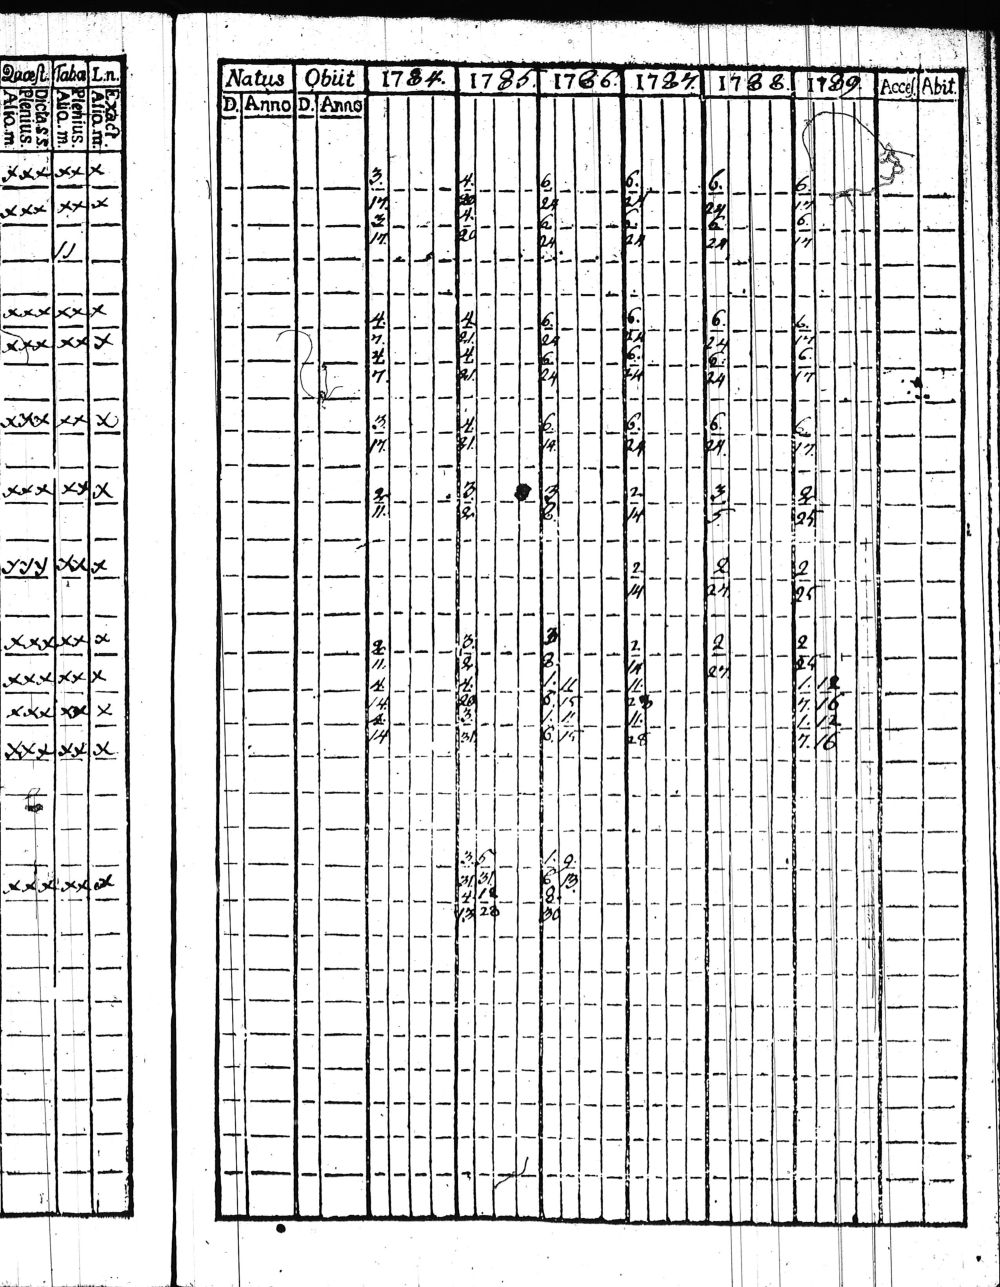 Quæst. Taba L.n.
Dicta s.s. Plenius. Alio.m.
Plenius. Alio.m.
Exact. Alio.m.
xxx xx x
xxx xx x
11
xxx xx x
xxx xx x
xxx xx x
xxx xx x
yyy xx x
xxx xx x
xxx xx x
xxx xx x
xxx xx x
xxx xx x
Natus Obiit 1784. 1785. 1786. 1787. 1788. 1789. Acces. Abit.
D. Anno D. Anno
3. 4. 6. 6. 6. 6.
17. 20 24 24 24 17
3. 4. 6. 6. 6. 6.
17. 20 24 24 24 17
4. 4. 6. 6. 6. 6.
7. 21. 24 24 24 17
4. 4. 6. 6. 6. 6.
7. 21. 24 24 24 17
3. 4. 6. 6. 6. 6.
17. 21. 14. 24 24. 17.
2 3. 3 2 3 2
11. 2. 8. 14 5 25
2 2 2
14 27 25
2 3. 3 2 2 2
11. 2. 8. 14 27 25
4. 4. 1. 11 11. 1. 12
14 20 6. 15 28 7. 16
4. 3. 1. 11 11. 1. 12
14 31. 6. 15 28 7. 16
3. 5 1. 9.
31. 31. 6. 13.
4. 12 8.
13. 28 30